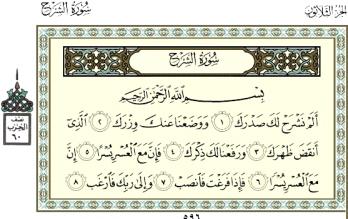 الجزء الثلاثون
سورة الشرح
سورة الشرح
بِسْمِ اللَّهِ الرَّحْمَٰنِ الرَّحِيمِ
أَلَمْ نَشْرَحْ لَكَ صَدْرَكَ ١ وَوَضَعْنَا عَنكَ وِزْرَكَ ٢ الَّذِي
أَنقَضَ ظَهْرَكَ ٣ وَرَفَعْنَا لَكَ ذِكْرَكَ ٤ فَإِنَّ مَعَ الْعُسْرِ يُسْرًا ٥ إِنَّ
مَعَ الْعُسْرِ يُسْرًا ٦ فَإِذَا فَرَغْتَ فَانصَبْ ٧ وَإِلَىٰ رَبِّكَ فَارْغَب ٨
نصف
الحزب
٦٠
٥٩٦